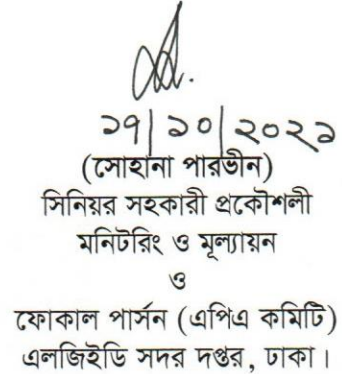 ১৭|১০|২০২১
(সোহানা পারভীন)
সিনিয়র সহকারী প্রকৌশলী
মনিটরিং ও মূল্যায়ন
ও
ফোকাল পার্সন (এপিএ কমিটি)
এলজিইডি সদর দপ্তর, ঢাকা।